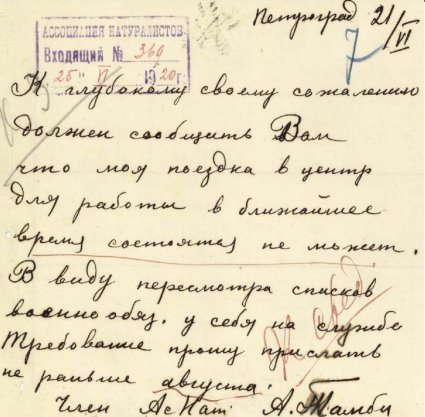 Петроград 21/VI
7
АССОЦИАЦИЯ НАТУРАЛИСТОВ
Входящий № 369
"25" VI 1920 г.
К глубокому своему сожалению
должен сообщить Вам
что моя поездка в центр
для работы в ближайшее
время состоятся не может.
В виду пересмотра списков
военнообяз. у себя на службе
Требование прошу прислать
не раньше августа.
Член АсНат: А. Тамби